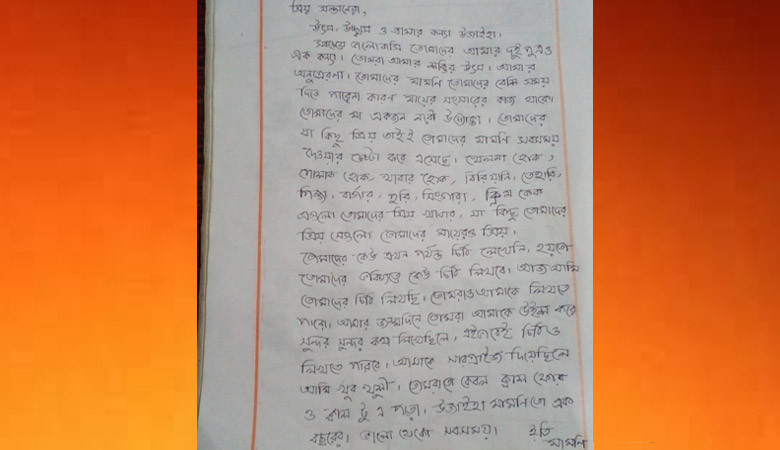 প্রিয় সন্তানেরা,
উৎস, উচ্ছ্বাস ও আমার কন্যা উজাইহা।
সবচেয়ে ভালোবাসি তোমাদের আমার দুই পুত্র ও
এক কন্যা। তোমরা আমার শক্তির উৎস। আমার
অনুপ্রেরনা। তোমাদের মামনি তোমাদের বেশি সময়
দিতে পারেনা কারণ মায়ের সংসারের কাজ থাকে।
তোমাদের মা একজন নারী উদ্যোক্তা। তোমাদের
যা কিছু প্রিয় তাই-ই তোমাদের মামনি সবসময়
দেওয়ার চেষ্টা করে এসেছে। খেলনা হোক,
পোশাক হোক, খাবার হোক, বিরিয়ানি, তেহারি,
পিজ্জা, বার্গার, পুরি, সিংগারা, ক্রিম কেক
এগুলো তোমাদের প্রিয় খাবার, যা কিছু তোমাদের
প্রিয় সেগুলো তোমাদের মায়েরও প্রিয়।
তোমাদের কেউ এখন পর্যন্ত চিঠি লেখেনি, হয়তো
তোমাদের ভবিষ্যতে কেউ চিঠি লিখবে। আজ আমি
তোমাদের চিঠি লিখছি। তোমরাও আমাকে লিখতে
পারো। আমার জন্মদিনে তোমরা আমাকে উইশ করে
সুন্দর সুন্দর কথা লিখেছিলে, এইভাবেই চিঠিও
লিখতে পারবে। আমাকে সারপ্রাইজ দিয়েছিলে
আমি খুব খুশী। তোমরাতো কেবল ক্লাস ফোর
ও ক্লাস টু তে পড়ো। উজাইহা মামনিতো এক
বছরের। ভালো থেকো সবসময়।
ইতি
মামনি